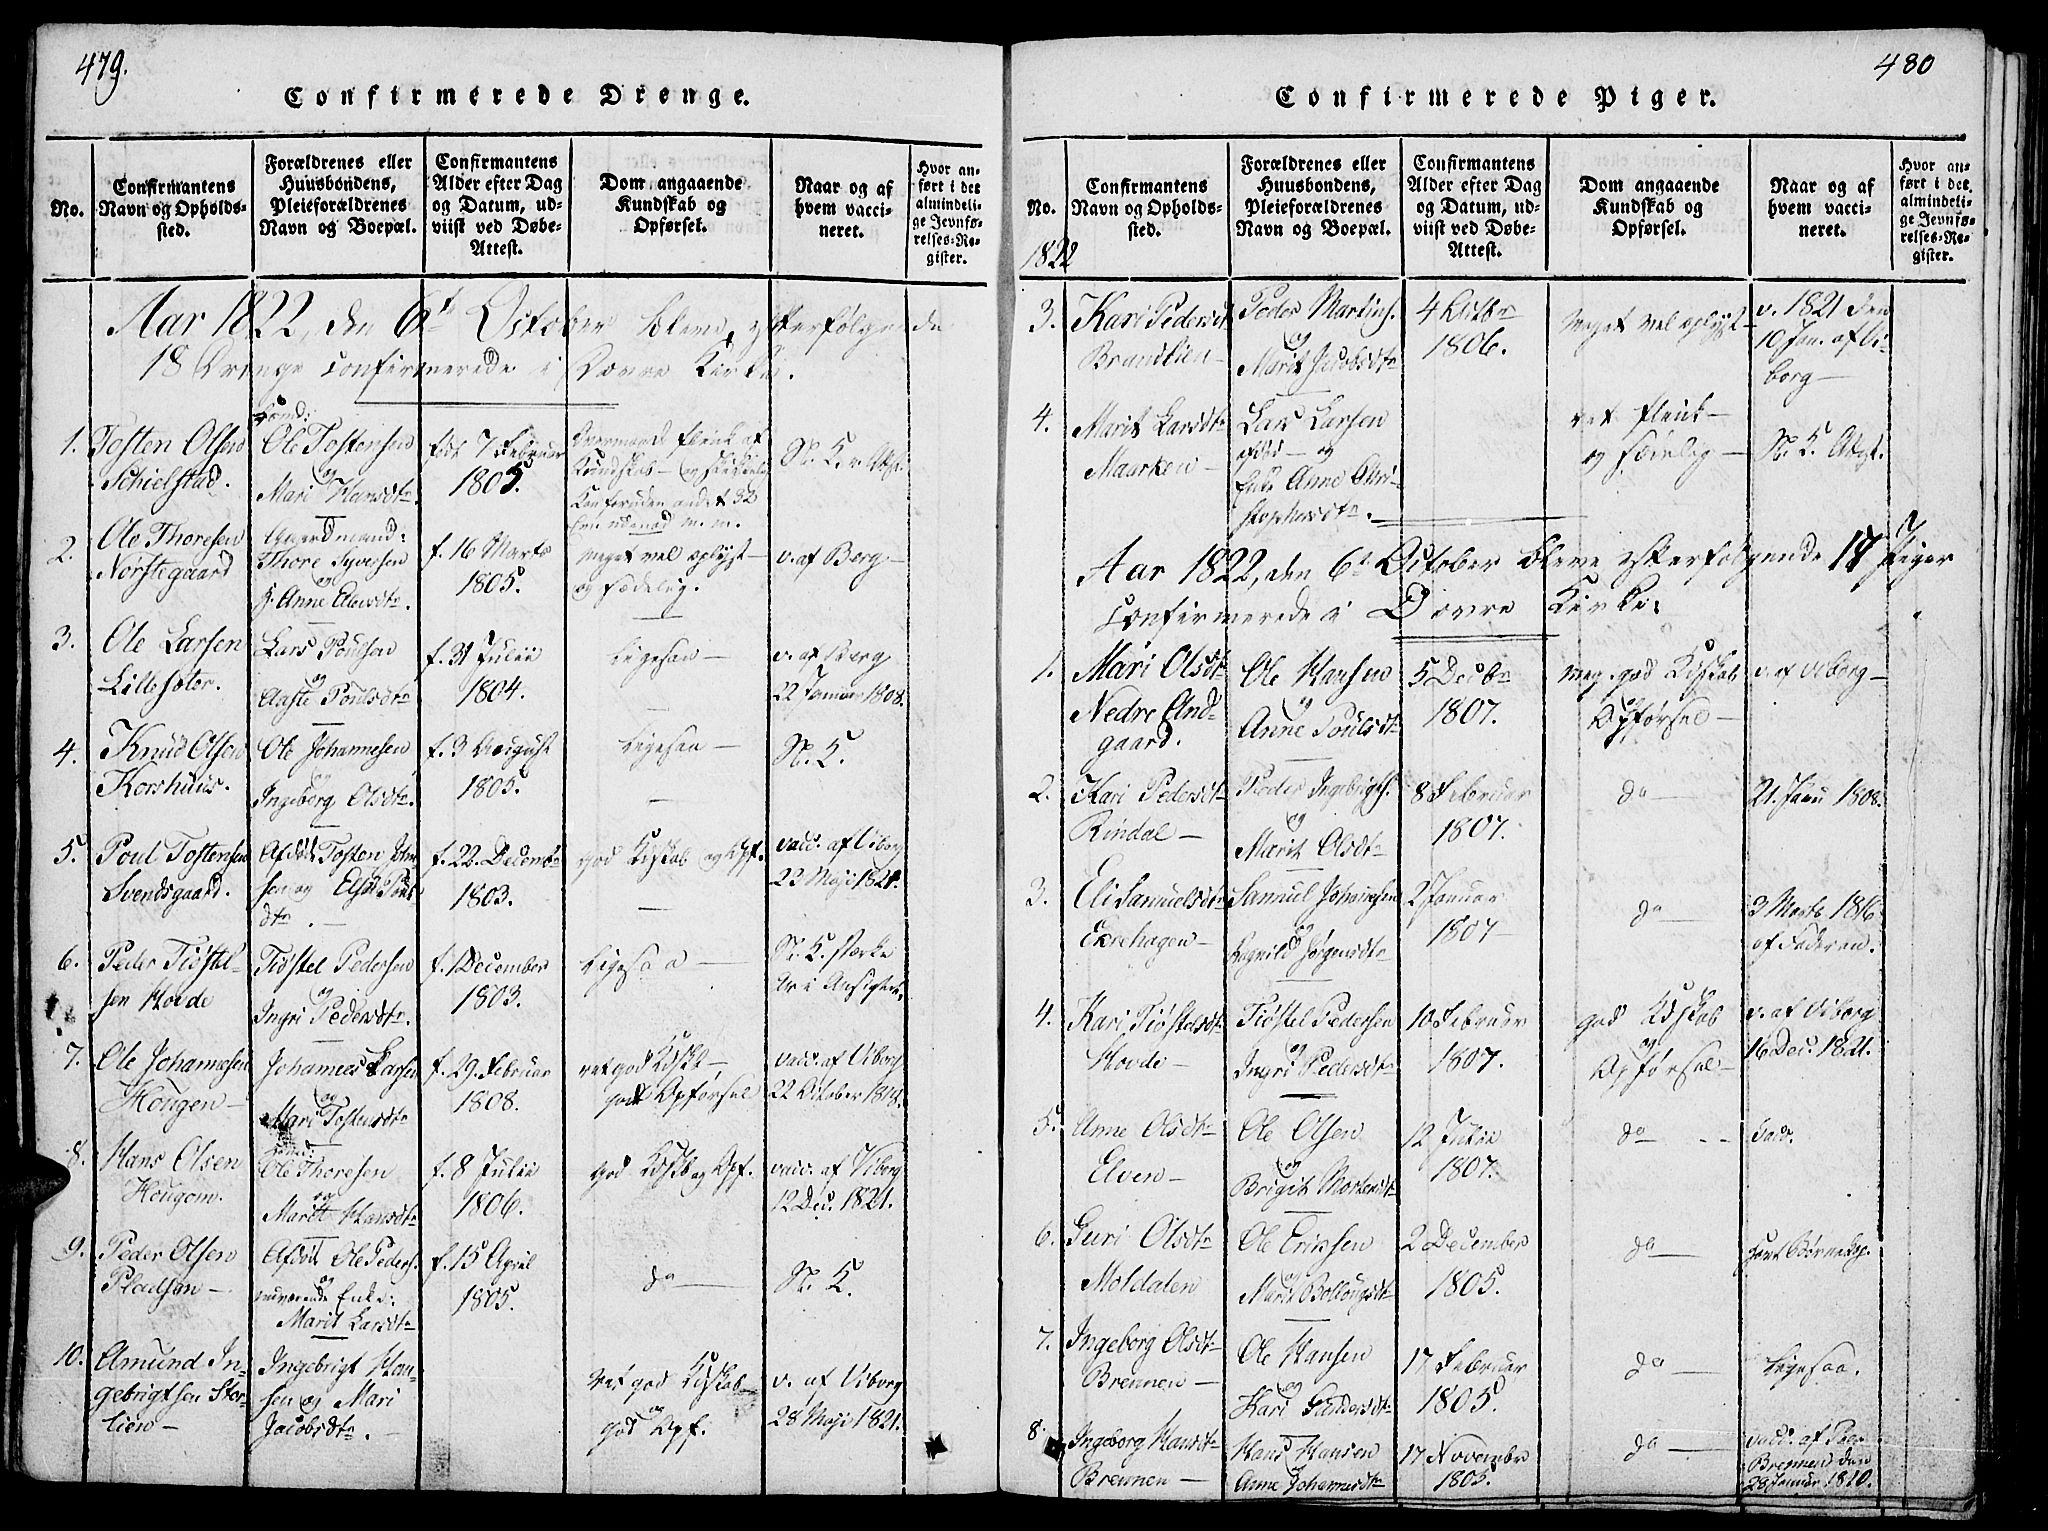 479.
Confirmerede Drenge.
No.
Confirmantens
Navn og Opholds-
sted.
Forældrenes eller
Huusbondens,
Pleieforældrenes
Navn og Boepæl.
Confirmantens
Alder efter Dag
og Datum, ud-
viist ved Døbe-
Attest.
Dom angaaende
Kundskab og
Opførsel.
Naar og af
hvem vacci-
neret.
Hvor an-
ført i det
almindeli-
ge Jevnfø-
relses-Re-
gister.
Aar 1822, den 6t October bleve efterfølgende
18 Drenge confirmerede i Dovre Kirke.
1. Tosten Olsen
Schielstad.
Ole Tostensen
og
Mari Hansdtr
født 7 Februar
1805.
2. Ole Thoresen
Norstegaard
Gaardmand:
Thore Syversen
og
Anne Olesdtr.
f. 16 Marts
1805.
meget vel oplyst
og sædelig.
v. af Berg
3. Ole Larsen
Lillesæter.
Lars Poulsen
og
Aaste Poulsdtr
f. 31 Julii
1804.
Ligesaa
v. af Berg
22 Januar 1808.
4. Knud Olsen
Korshuus.
Ole Johannesen
og
Ingeborg Olsdtr.
f. 3 August
1805.
Ligesaa
N. K.
5. Poul Tostensen
Svendsgaard.
Afdøde Tosten
sen og
dtr.
f. 22. Decembr
1803.
god Kdskab og Opf.
vacc. af Viborg
22 Maji 1821.
6. Peder Tiøstel-
sen Hovde
Tiøstel Pedersen
og
Ingri Pedersdtr.
f. 1 December
1803.
Ligesaa
N. K.
7. Ole Johannesen
Hougen
Johannes Larsen
og
Mari Tostensdtr
f. 29. Februar
1808.
ret god
god Opførsel
vacc. af Viborg
22 October 1818.
8. Hans Olsen
Hougom.
Ole Thoresen
og
Marit Hansdtr
f. 8 Julii
1806.
god Kdskb og Opf.
vacc. af Viborg
12 Dec. 1821.
9. Peder Olsen
Pladsen
Afdøde Ole Peders.
og
Enke:
Marit Larsdtr
f. 15 April
1805.
do
N. K.
10. Amund In-
gebrigtsen Stor-
lien
Ingebrigt Han-
sen og Mari
Jacobsdtr.
ret god Kdskab
og
god Opf.
v. af Viborg
28 Maji 1821.
480
Confirmerede Piger.
No.
Confirmantens
Navn og Opholds-
sted.
Forældrenes eller
Huusbondens,
Pleieforældrenes
Navn og Boepæl.
Confirmantens
Alder efter Dag
og Datum, ud-
viist ved Døbe-
Attest.
Dom angaaende
Kundskab og
Opførsel.
Naar og af
hvem vacci-
neret.
Hvor an-
ført i det
almindeli-
ge Jevnfø-
relses-Re-
gister.
1822
3. Kari Pedersdtr
Brandlien
Peder Martins.
og
Marit Jacobsdtr
4 Octbr
1806.
meget vel oplyst
v. 1821 den
10 Jan. af Vi-
borg
4. Marit Larsdtr
Maarken
Lars Larsen
afdød og
Enke Anne Chri-
stophersdtr.
ret flink
og skikkelig
N. K. Attest.
Aar 1822, den 6t October bleve efterfølgende 17 Piger
confirmerede i Dovre Kirke:
1. Mari Olsdtr
Nedre And-
gaard.
Ole Hansen
og
Anne Poulsdtr
5 Decbr
1807.
meg. god Kdskab
og
Opførsel
v. af Viborg
2. Kari Pedersdtr
Rindal
Peder Ingebrigts.
og
Marit Olsdtr
8 Februar
1807.
do
21. Janu 1808.
3. Eli Samuelsdtr
Exrehagen
Samuel Johannesen
og
Ragnild Jørgensdtr
2 Januar
1807
do
3 Marts 1816
af Faderen.
4. Kari Tiøstelsdtr
Hovde
Tiøstel Pedersen
og
Ingri Pedersdtr
10 Februar
1807.
god Kdskab
og
Opførsel
v. af Viborg
16 Dec. 1821.
5. Anne Olsdtr
Elven
Ole Olsen
og
Brigit Mortensdtr
12 Julii
1807.
do
6. Guri Olsdtr
Moldalen
Ole Erichsen
og
Marit Bottolfsdtr
2 December
1805.
do
havt Børnekop.
7. Ingeborg Olsdtr
Brennen
Ole Hansen
og
Kari Gundersdtr
17 Februar
1805.
do
Ligesaa.
8. Ingeborg Hansdtr
Brennen
Hans Hansen
og
Anne Johannesdtr
17 Novembr
1805.
do
vacc. af Peder
Brennen den
28 Januar 1810.